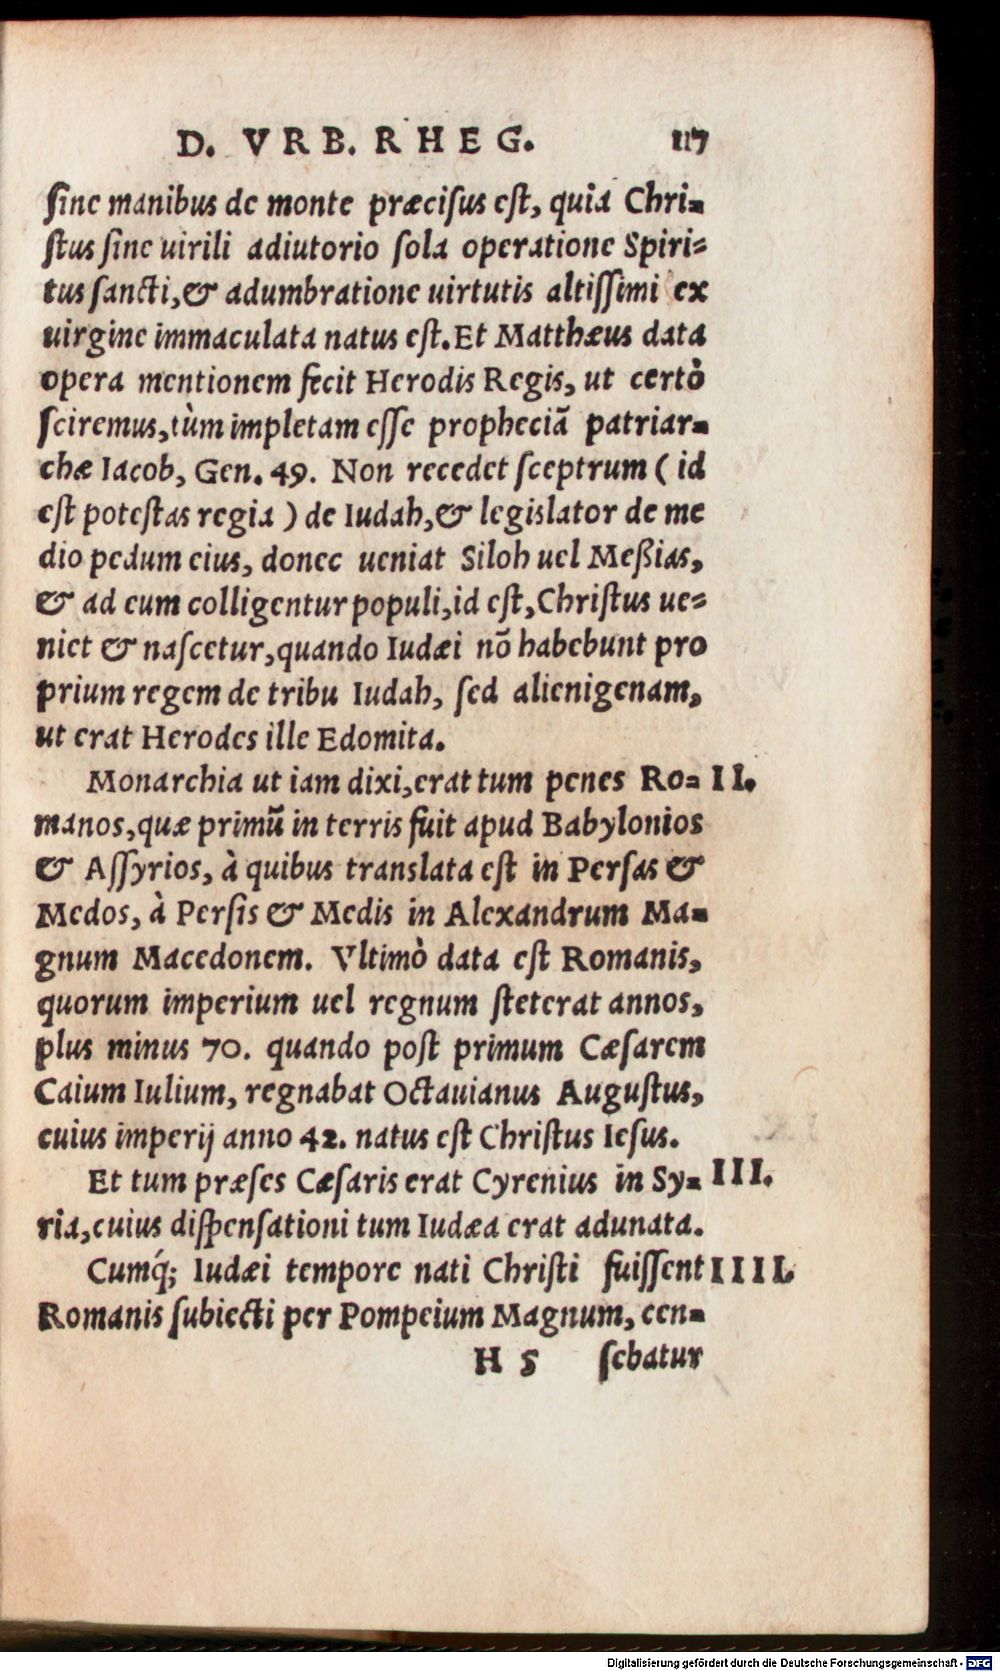 D. VRB. RHEG. 117
sine manibus de monte præcisus est, quia Chri-
stus sine uirili adiutorio sola operatione Spiri-
tus sancti, & adumbratione uirtutis altissimi ex
uirgine immaculata natus est. Et Matthæus data
opera mentionem fecit Herodis Regis, ut certò
sciremus, tùm impletam esse propheciã patriar-
chæ Iacob, Gen. 49. Non recedet sceptrum ( id
est potestas regia ) de Iudah, & legislator de me
dio pedum eius, donec ueniat Siloh uel Meßias,
& ad eum colligentur populi, id est, Christus ue-
niet & nascetur, quando Iudæi nõ habebunt pro
prium regem de tribu Iudah, sed alienigenam,
ut erat Herodes ille Edomita.
Monarchia ut iam dixi, erat tum penes Ro- II.
manos, quæ primũ in terris fuit apud Babylonios
& Assyrios, à quibus translata est in Persas &
Medos, à Persis & Medis in Alexandrum Ma-
gnum Macedonem. Vltimò data est Romanis,
quorum imperium uel regnum steterat annos,
plus minus 70. quando post primum Cæsarem
Caium Iulium, regnabat Octauianus Augustus,
cuius imperij anno 42. natus est Christus Iesus.
Et tum præses Cæsaris erat Cyrenius in Sy- III.
ria, cuius dispensationi tum Iudæa erat adunata.
Cumq́; Iudæi tempore nati Christi fuissent IIII.
Romanis subiecti per Pompeium Magnum, cen-
H 5 sebatur
Digitalisierung gefördert durch die Deutsche Forschungsgemeinschaft - DFG